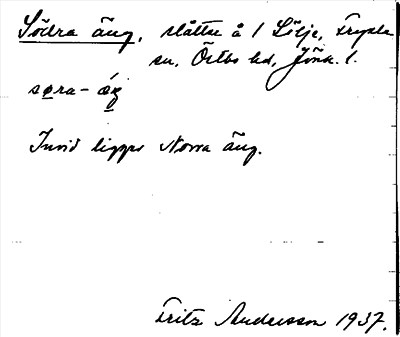 Södra äng, slåtter å 1 Lilje, Fryele
sn, Östbo hd, Jönk. l.
søra- æŋ
Invid ligger Norra äng.
Fritz Andersson 1937.